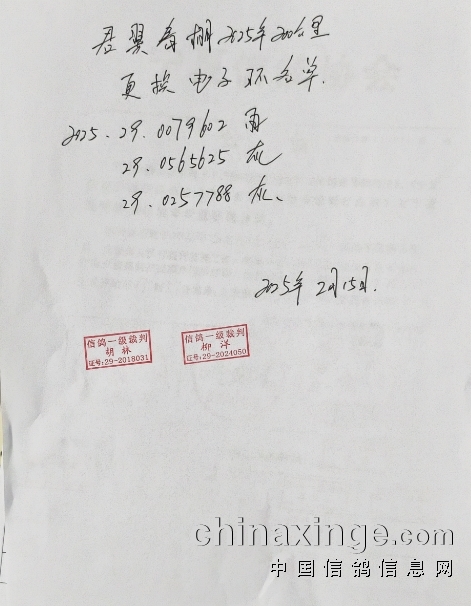 君翼春棚2025年200公里
更换电子环名单.
2025.29.0079602 雨
29.0565625 灰
29.0257788 灰、
2025年2月15日.
信鸽一级裁判
胡林
证号:29-2018031
信鸽一级裁判
柳洋
证号:29-2024050
chinaxinge.com
中国信鸽信息网